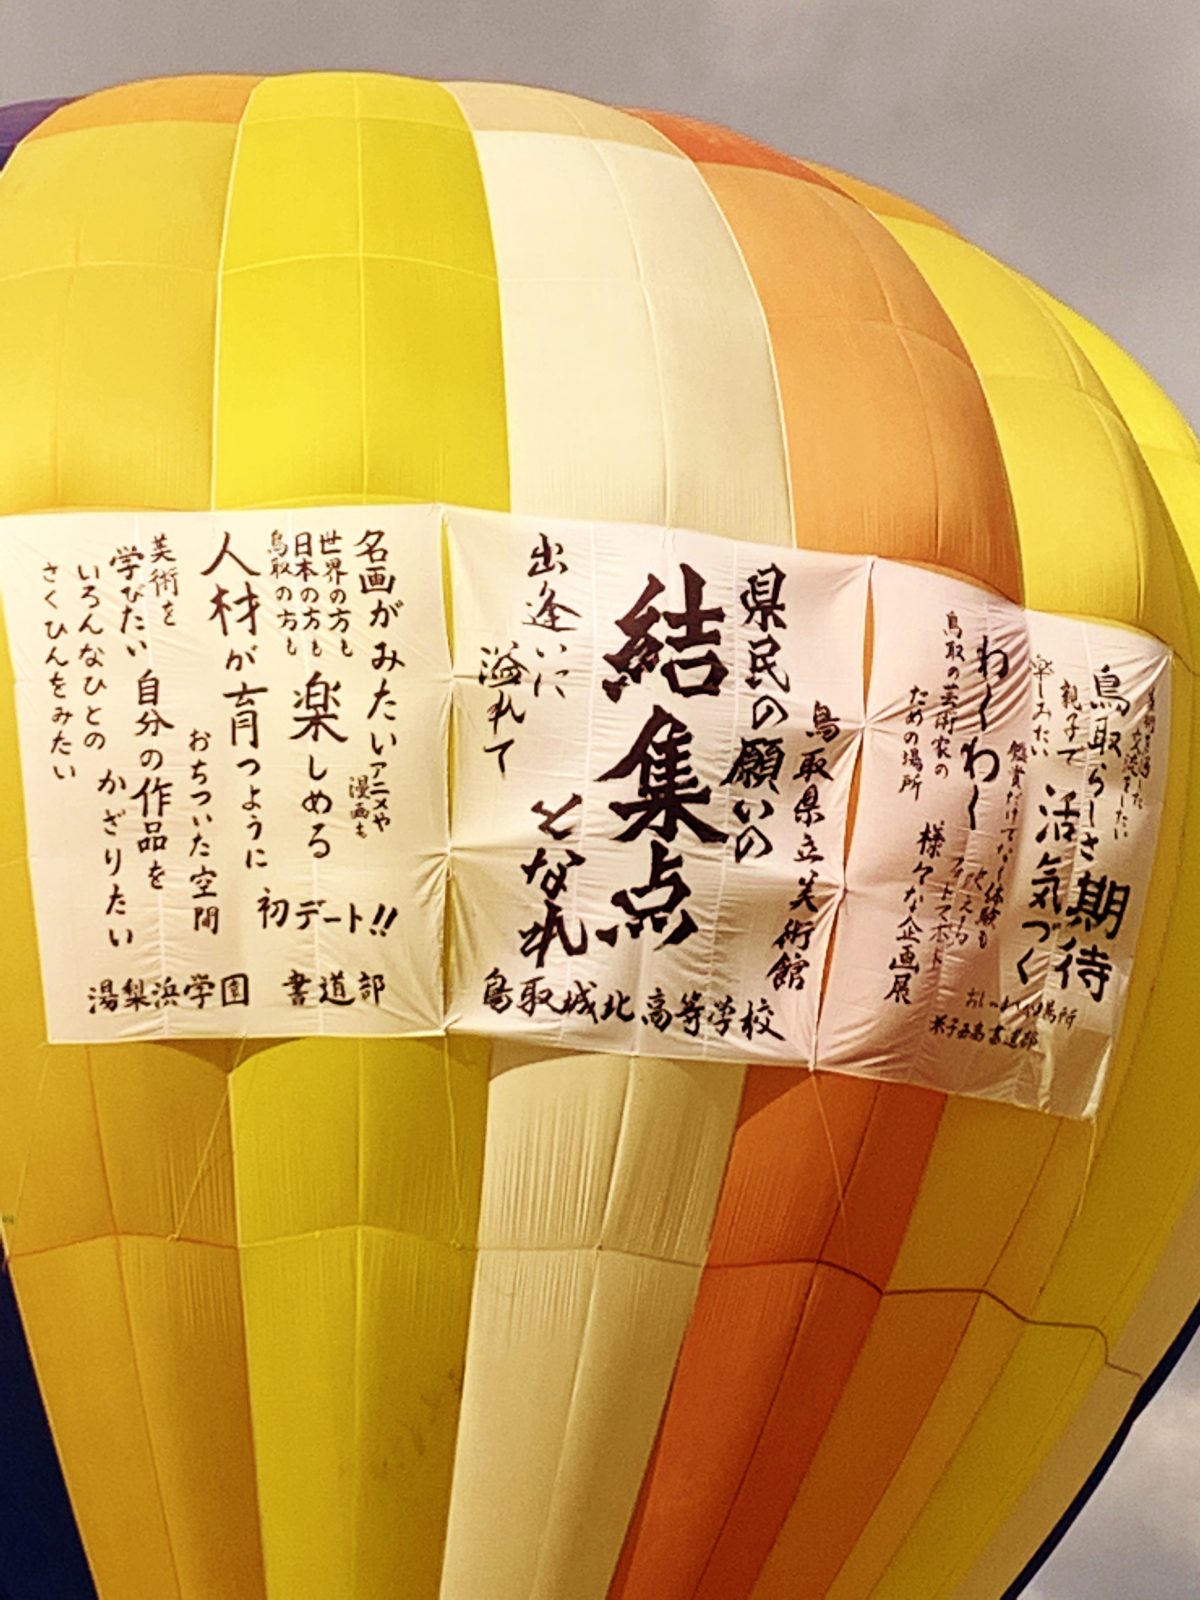 鳥取らしさ期待
親子で活気づく
楽しみたい
わくわく
鳥取の芸術家の
ための場所
様々な企画展
米子西高書道部
鳥取県立美術館
県民の願いの
結集点
となれ
出逢いに
溢れて
鳥取城北高等学校
名画がみたい
アニメや
漫画も
世界の方も
日本の方も
鳥取の方も
楽しめる
初デート!!
人材が育つように
おちついた空間
美術を
学びたい
自分の作品を
かざりたい
いろんなひとの
さくひんをみたい
湯梨浜学園 書道部